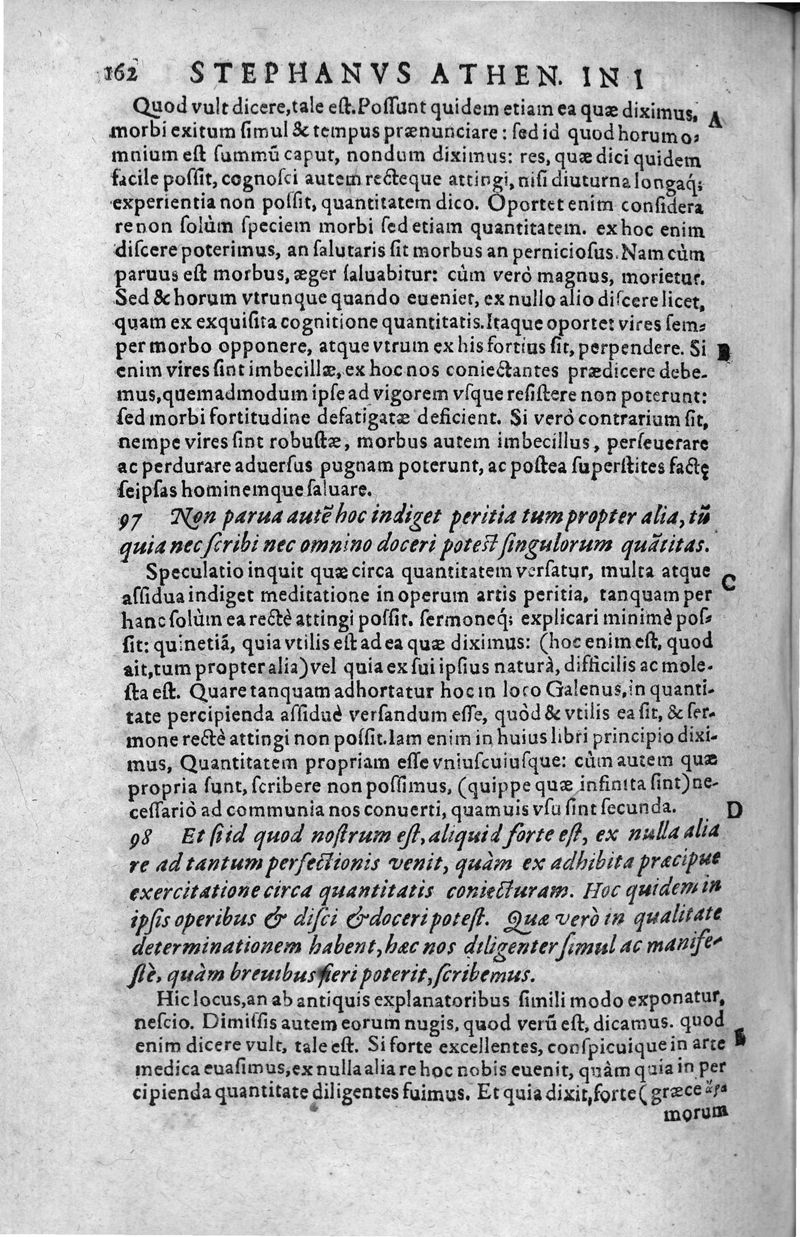 162 STEPHANVS ATHEN. IN I
Quod vult dicere, tale est. Possunt quidem etiam ea quæ diximus, A
morbi exitum simul & tempus prænunciare: sed id quod horum o-
mnium est summũ caput, nondum diximus: res, quæ dici quidem
facile possit, cognosci autem recteque attingi, nisi diuturna longaq;
experientia non possit, quantitatem dico. Oportet enim considera
re non solùm speciem morbi sed etiam quantitatem. ex hoc enim
discere poterimus, an salutaris sit morbus an perniciosus. Nam cùm
paruus est morbus, æger saluabitur: cùm verò magnus, morietur.
Sed & horum vtrunque quando eueniet, ex nullo alio discere licet,
quam ex exquisita cognitione quantitatis. Itaque oportet vires sem-
per morbo opponere, atque vtrum ex his fortius sit, perpendere. Si B
enim vires sint imbecillæ, ex hoc nos coniectantes prædicere debe-
mus, quemadmodum ipse ad vigorem vsque resistere non poterunt:
sed morbi fortitudine defatigatæ deficient. Si verò contrarium sit,
nempe vires sint robustæ, morbus autem imbecillus, perseuerare
ac perdurare aduersus pugnam poterunt, ac postea superstites factę
seipsas hominemque saluare.
97 Non parua autē hoc indiget peritia tum propter alia, tũ
quia nec scribi nec omnino doceri potest singulorum quātitas.
Speculatio inquit quæ circa quantitatem versatur, multa atque C
assidua indiget meditatione in operum artis peritia, tanquam per
hanc solùm ea rectè attingi possit. sermoneq; explicari minimè pos-
sit: quinetiã, quia vtilis est ad ea quæ diximus: (hoc enim est, quod
ait, tum propter alia) vel quia ex sui ipsius naturà, difficilis ac mole-
sta est. Quare tanquam adhortatur hoc in loco Galenus, in quanti-
tate percipienda assiduè versandum esse, quòd & vtilis ea sit, & ser-
mone rectè attingi non possit. Iam enim in huius libri principio dixi-
mus, Quantitatem propriam esse vniuscuiusque: cùm autem quæ
propria sunt, scribere non possimus, (quippe quæ infinita sint) ne-
cessariò ad communia nos conuerti, quamuis vsu sint secunda. D
98 Et si id quod nostrum est, aliquid forte est, ex nulla alia
re ad tantum perfectionis venit, quàm ex adhibita præcipue
exercitatione circa quantitatis coniecturam. Hoc quidem in
ipsis operibus & disci & doceri potest. Quæ verò in qualitate
determinationem habent, hæc nos diligenter simul ac manife-
stè, quàm breuibus fieri poterit, scribemus.
Hic locus, an ab antiquis explanatoribus simili modo exponatur,
nescio. Dimissis autem eorum nugis, quod verũ est, dicamus. quod
enim dicere vult, tale est. Si forte excellentes, conspicuique in arte
medica euasimus, ex nulla alia re hoc nobis euenit, quàm quia in per
cipienda quantitate diligentes fuimus. Et quia dixit, forte (græce ἄρα
morum